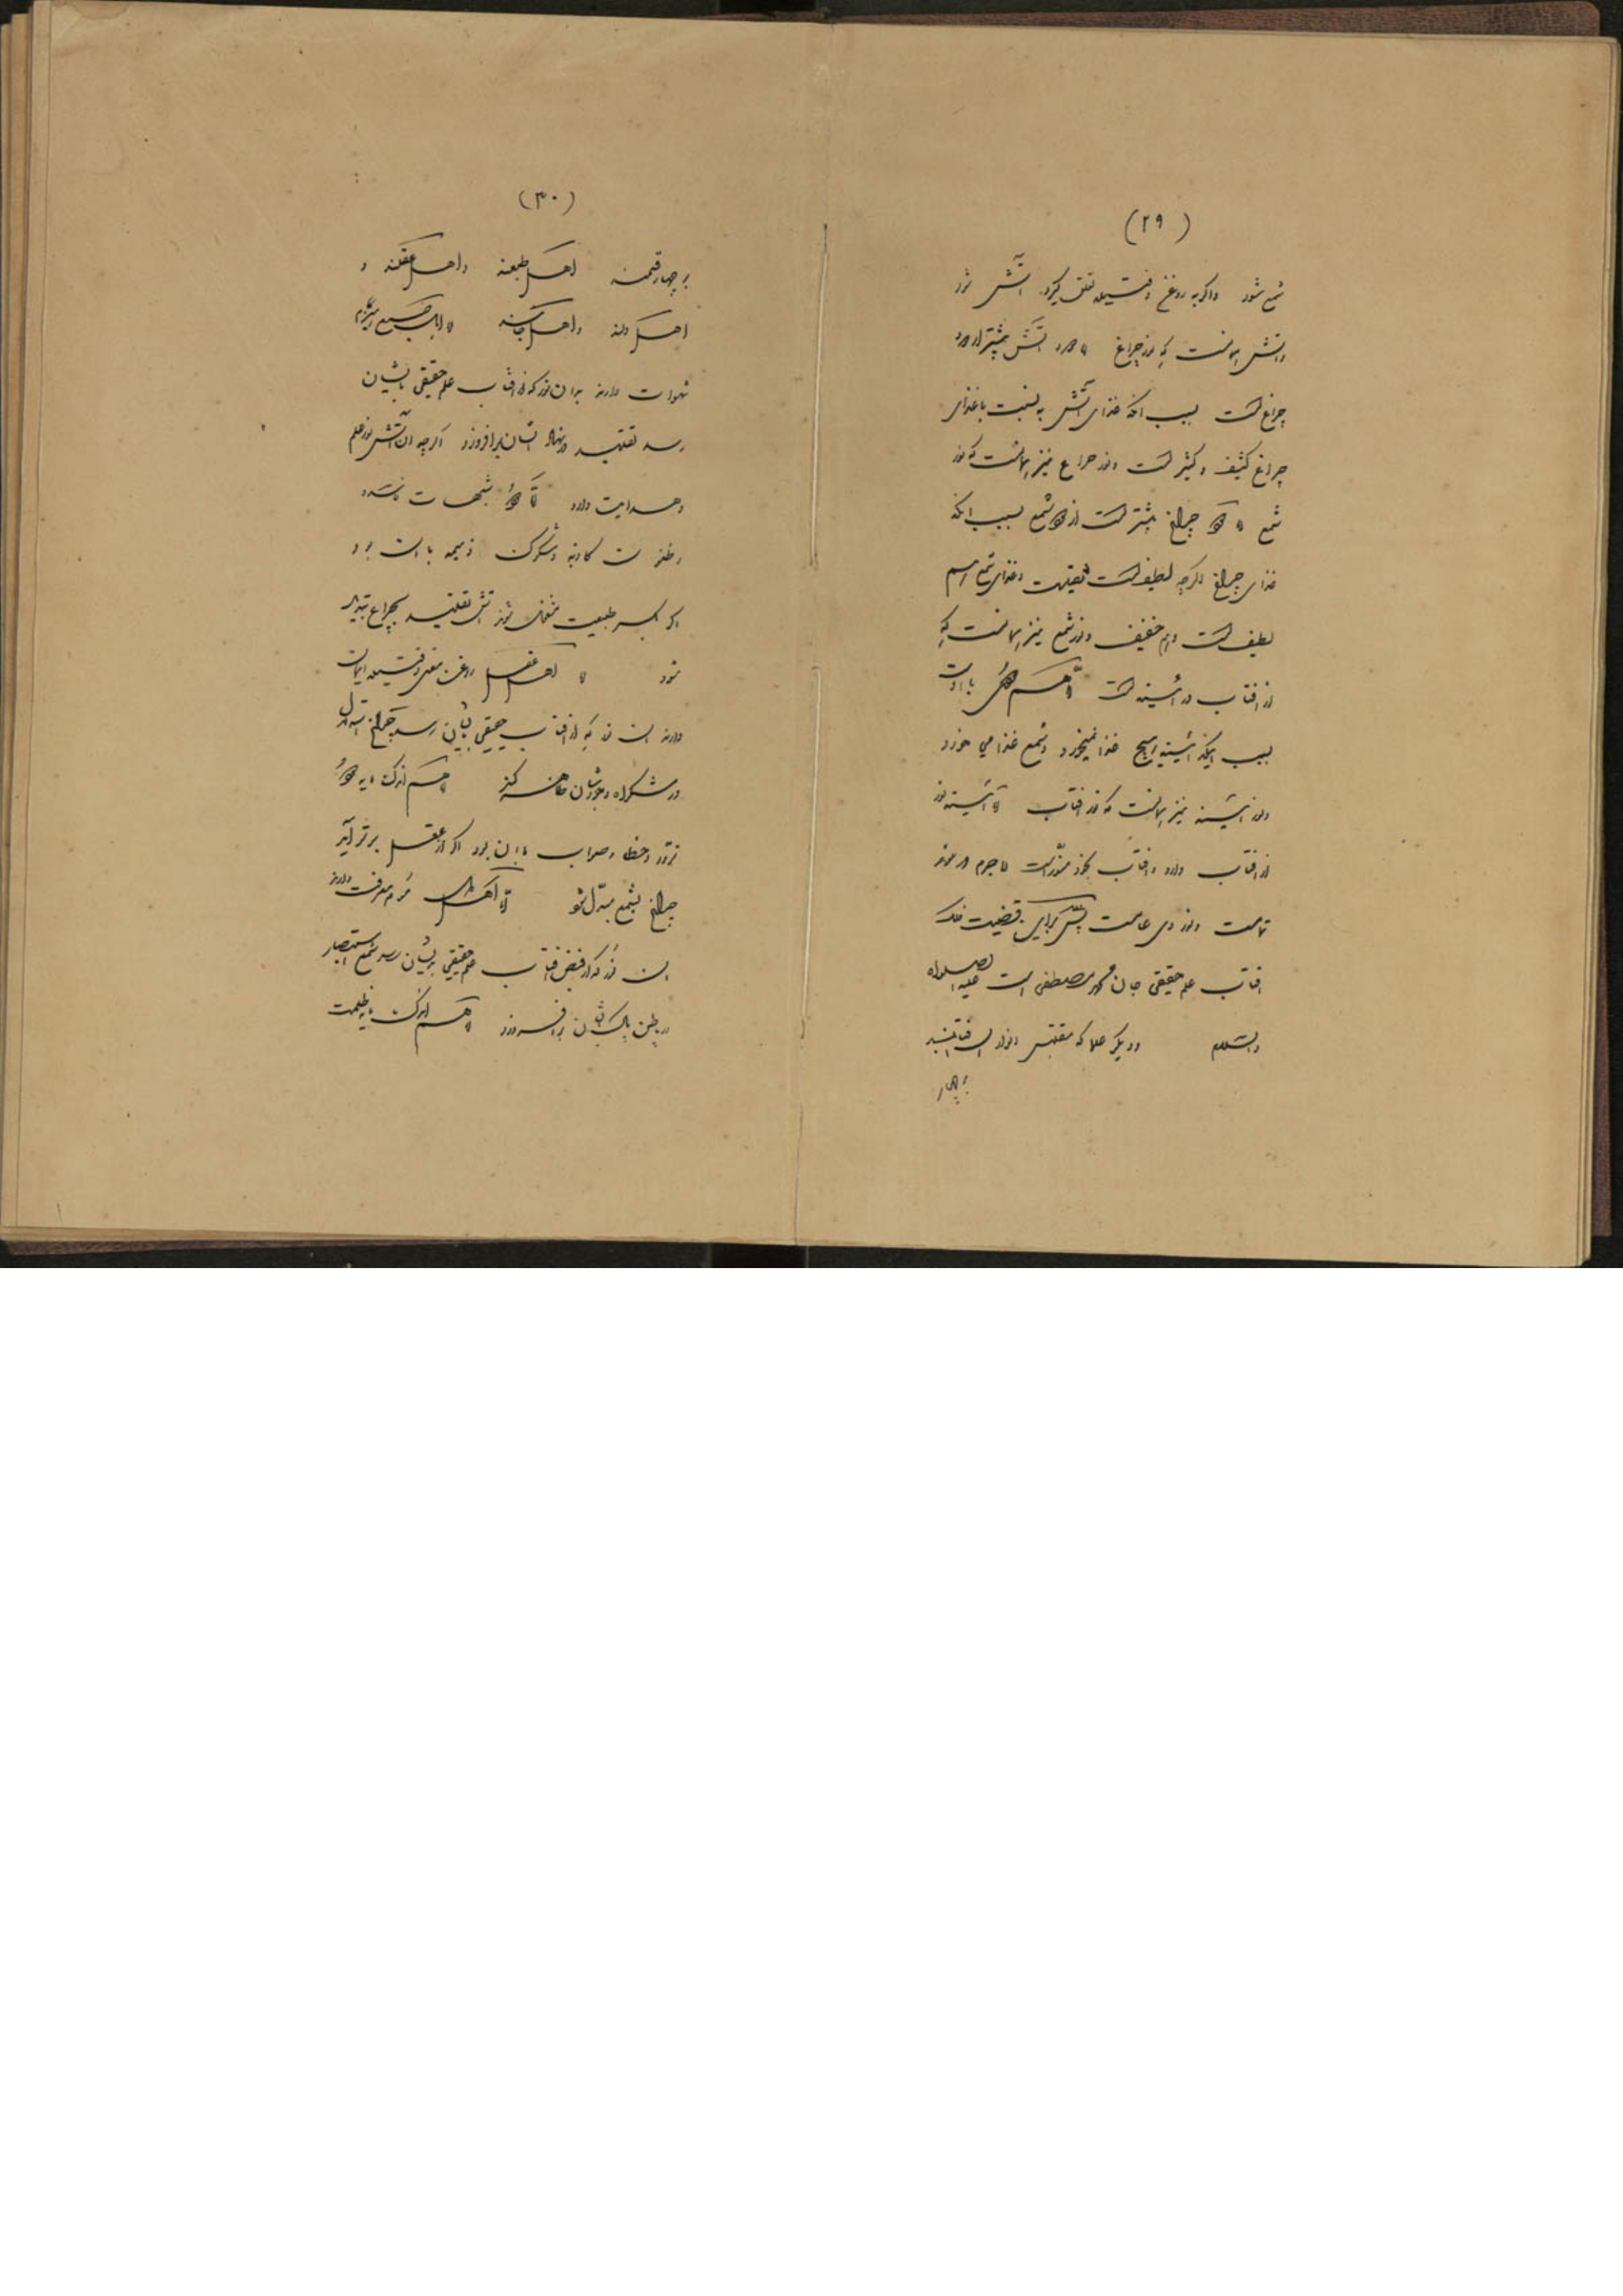 (۲۹)
شمع شود واگر به روغن و فتیله تعلق گیرد آتش شود
و آتش همانست که نور چراغ اما دود آتش بیشتر از دود
چراغ است بسبب آنکه غذای آتش به نسبت با غذای
چراغ کثیف و کثیر است و نور چراغ نیز همانست که نور
شمع اما دود چراغ بیشتر است از دود شمع بسبب آنکه
غذای چراغ اگرچه لطیف است ثقیلست و غذای شمع هم
لطیف است و هم خفیف و نور شمع نیز همانست که
از افتاب در آئینه است اما هم با اوست
بسبب اینکه آئینه هیچ غذا نمیخورد و شمع غذا می خورد
و نور آئینه نیز همانست که نور افتاب اما آئینه نور
از افتاب دارد و افتاب بخود منور است لاجرم در نور
تمامست و نور وی عامست پس بنابراین قضیت
افتاب علم حقیقی جان محمد مصطفی است علیه الصلواه
والسلام و دیگر علما که مقتبس انوار آن افتابند
بر چهار
(۳۰)
بر چهار قسمند اهل طبعند و اهل عقلند و
اهل دلند و اهل جانند اما اهل طبع هیزم
شهوات دارند بدان نور که از افتاب علم حقیقی بایشان
رسد تقلید در نهاد ایشان برافروزد اگرچه آن آتش نور علم
و هدایت دارد اما دود شبهات فاسده
و ظنون کاذبه و شکوک ذمیمه با آن بود
اگر طبیعت شود آتش تقلید بچراغ تبدیل
شود اما اهل عقل روغن و فتیله ایمان
دارند آن نور که از افتاب حقیقی بایشان رسد چراغ استدلال
در مشکواه وجودشان کند اما هم اندک مایه دود
تردد و خطا و صواب با آن بود اگر از عقل برتر آید
چراغ بشمع مبدل شود اما اهل دل موم معرفت دارند
آن نور که از فیض افتاب علم حقیقی بدیشان رسد شمع استبصار
در باطن پاک ایشان برافروزد اما هم اندک مایه ظلمت